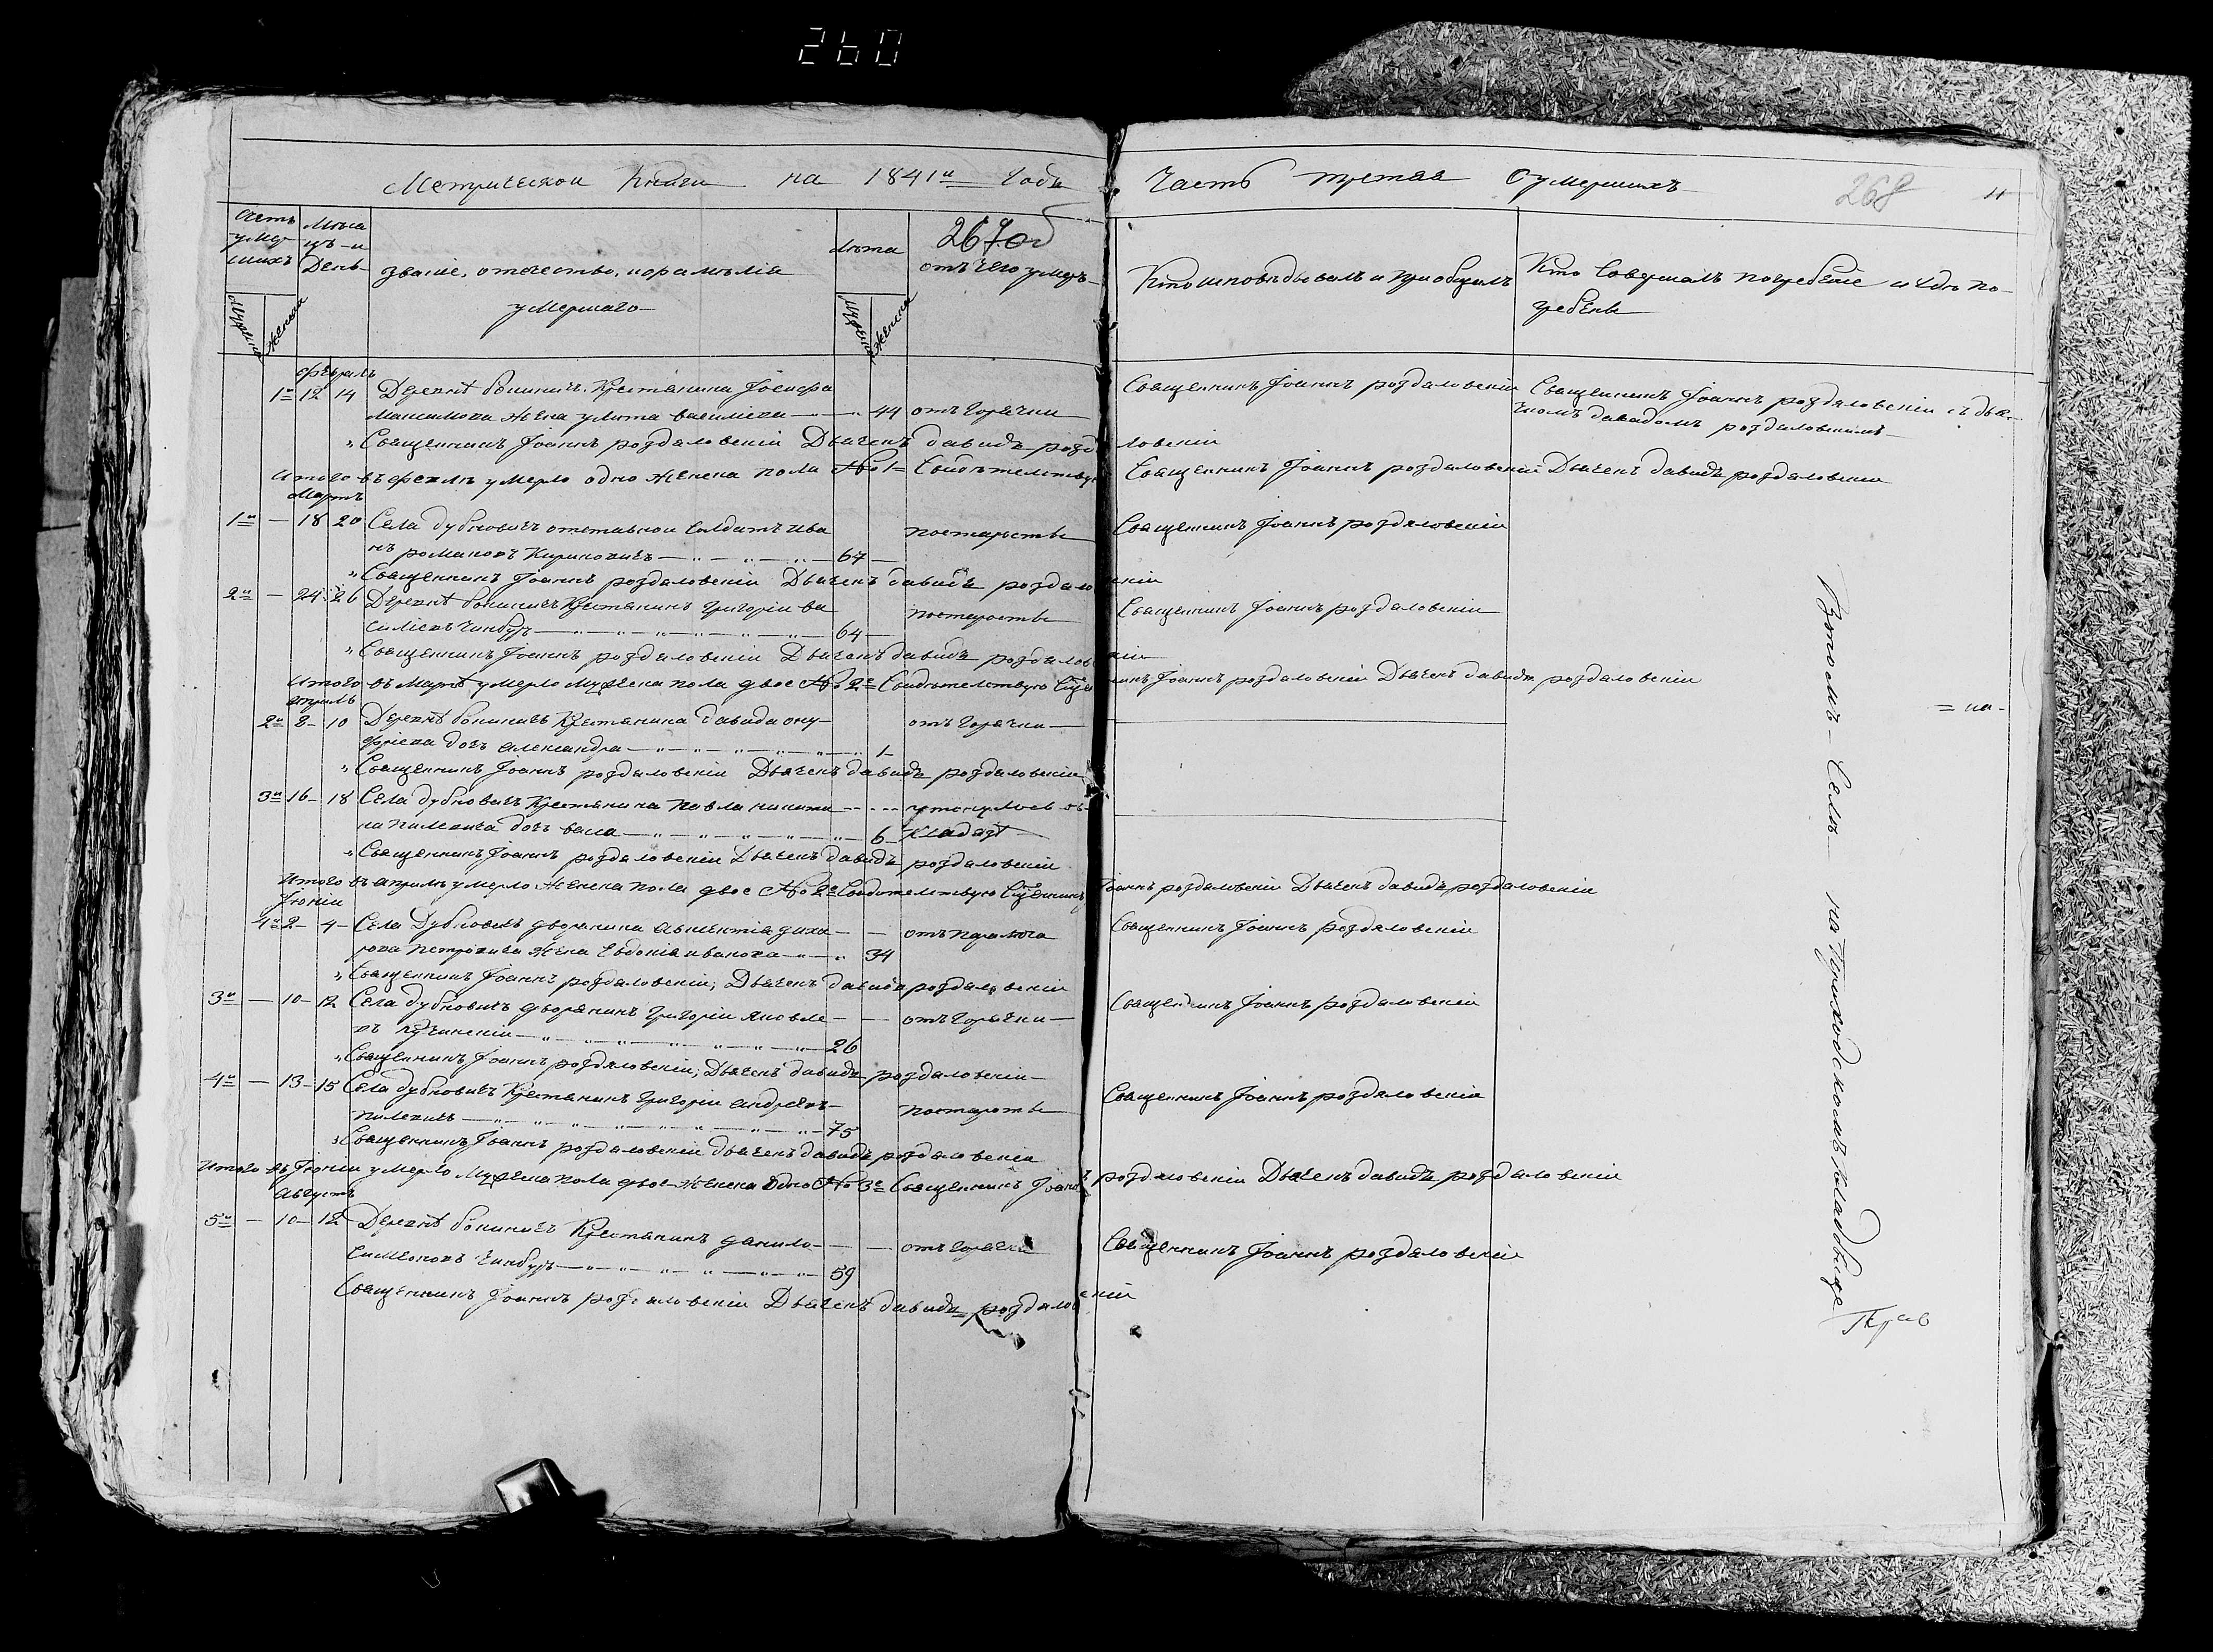 260
Метрической Книги на 1841й Годъ
Часть третая О умершихъ
268
11
Щетъ умершихъ
Мѣсяцъ и День
званіе, отечество, и фамилія
умершаго
Лѣта
267об
отъ чего умеръ
Кто исповѣдывалъ и приобщалъ
Кто Совершалъ погребеніе и Где по-
гребены
Мужеска
Женска
Мужеска
Женска
Февраль
1я 12 14 Деревнѣ Крестянина Іосифа
Максимова Жена улита василева 44 отъ Горячки
Священникъ Іоаннъ роздаловскій
Священникъ Іоаннъ роздаловскій съ дья-
чкомъ давидомъ роздаловскимъ
Священникъ Іоаннъ роздаловскій Дьячекъ давидъ роздаловскій
Итого въ февалѣ умерло одно Женска пола №о 1 Свидѣтелствую Священникъ Іоаннъ роздаловскій Дьячекъ давидъ роздаловскій
Мартъ
1й — 18 20 Села дубковичъ отставной Солдатъ Ива
нъ романовъ 67 постарости Священникъ Іоаннъ роздаловскій
Священникъ Іоаннъ роздаловскій Дьячекъ давидъ роздаловскій
2й — 24 26 Деревнѣ Крестянинъ Григорій Ва
силіевъ Чинбуръ 64 постарости Священникъ Іоаннъ роздаловскій
Священникъ Іоаннъ роздаловскій Дьячекъ давидъ роздаловскій
Итого въ Мартѣ умерло Мужеска пола двое №о 2е Свидѣтелствую Іоаннъ роздаловскій Дьячекъ давидъ роздаловскій
Априль
2я 8 10 Деревнѣ Крестянина давида ону-
фріева дочь александра 1 отъ Горячки
Священникъ Іоаннъ роздаловскій Дьячекъ давидъ роздаловскій
3я 16 18 Села дубковичъ Крестянина Павла никити
на Пилевича дочь 6 утонулась въ
Кладязѣ
Священникъ Іоаннъ роздаловскій Дьячекъ давидъ роздаловскій
Итого въ априлѣ умерло Женска пола двое №о 2е Свидѣтелствую Сщенникъ Іоаннъ роздаловскій Дьячекъ давидъ роздаловскій
Іюній
4я 2 4 Села Дубковичъ дворянина
Жена Евдокія иванова 34 отъ паралюча Священникъ Іоаннъ роздаловскій
Священникъ Іоаннъ роздаловскій, Дьячекъ давидъ роздаловскій
3й — 10 12 Села дубковичъ дворянинъ Григорій яковле-
въ 26 отъ Горячки Священникъ Іоаннъ роздаловскій
Священникъ Іоаннъ роздаловскій, Дьячекъ давидъ роздаловскій
4й — 13 15 Села дубковичъ Крестянинъ Григорій андреевъ
Пилевичъ 75 постарости Священникъ Іоаннъ роздаловскій
Священникъ Іоаннъ роздаловскій дьячекъ давидъ роздаловскій
Итого въ Іюніи умерло Мужеска пола двое Женска Одно №о 3е Священникъ Іоаннъ роздаловскій Дьячекъ давидъ роздаловскій
Августъ
5й — 10 12 Деревнѣ Крестянинъ данило
Симеоновъ Чинбуръ 59 отъ Горячки Священникъ Іоаннъ роздаловскій
Священникъ Іоаннъ роздаловскій Дьячекъ давидъ роздаловскій
Втомъ Селѣ на Приходскомъ кладбище